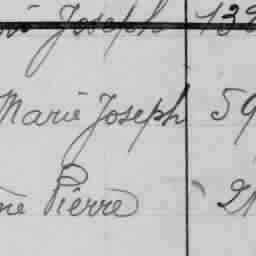 Joseph 139
Marie Joseph 59
Pierre 21